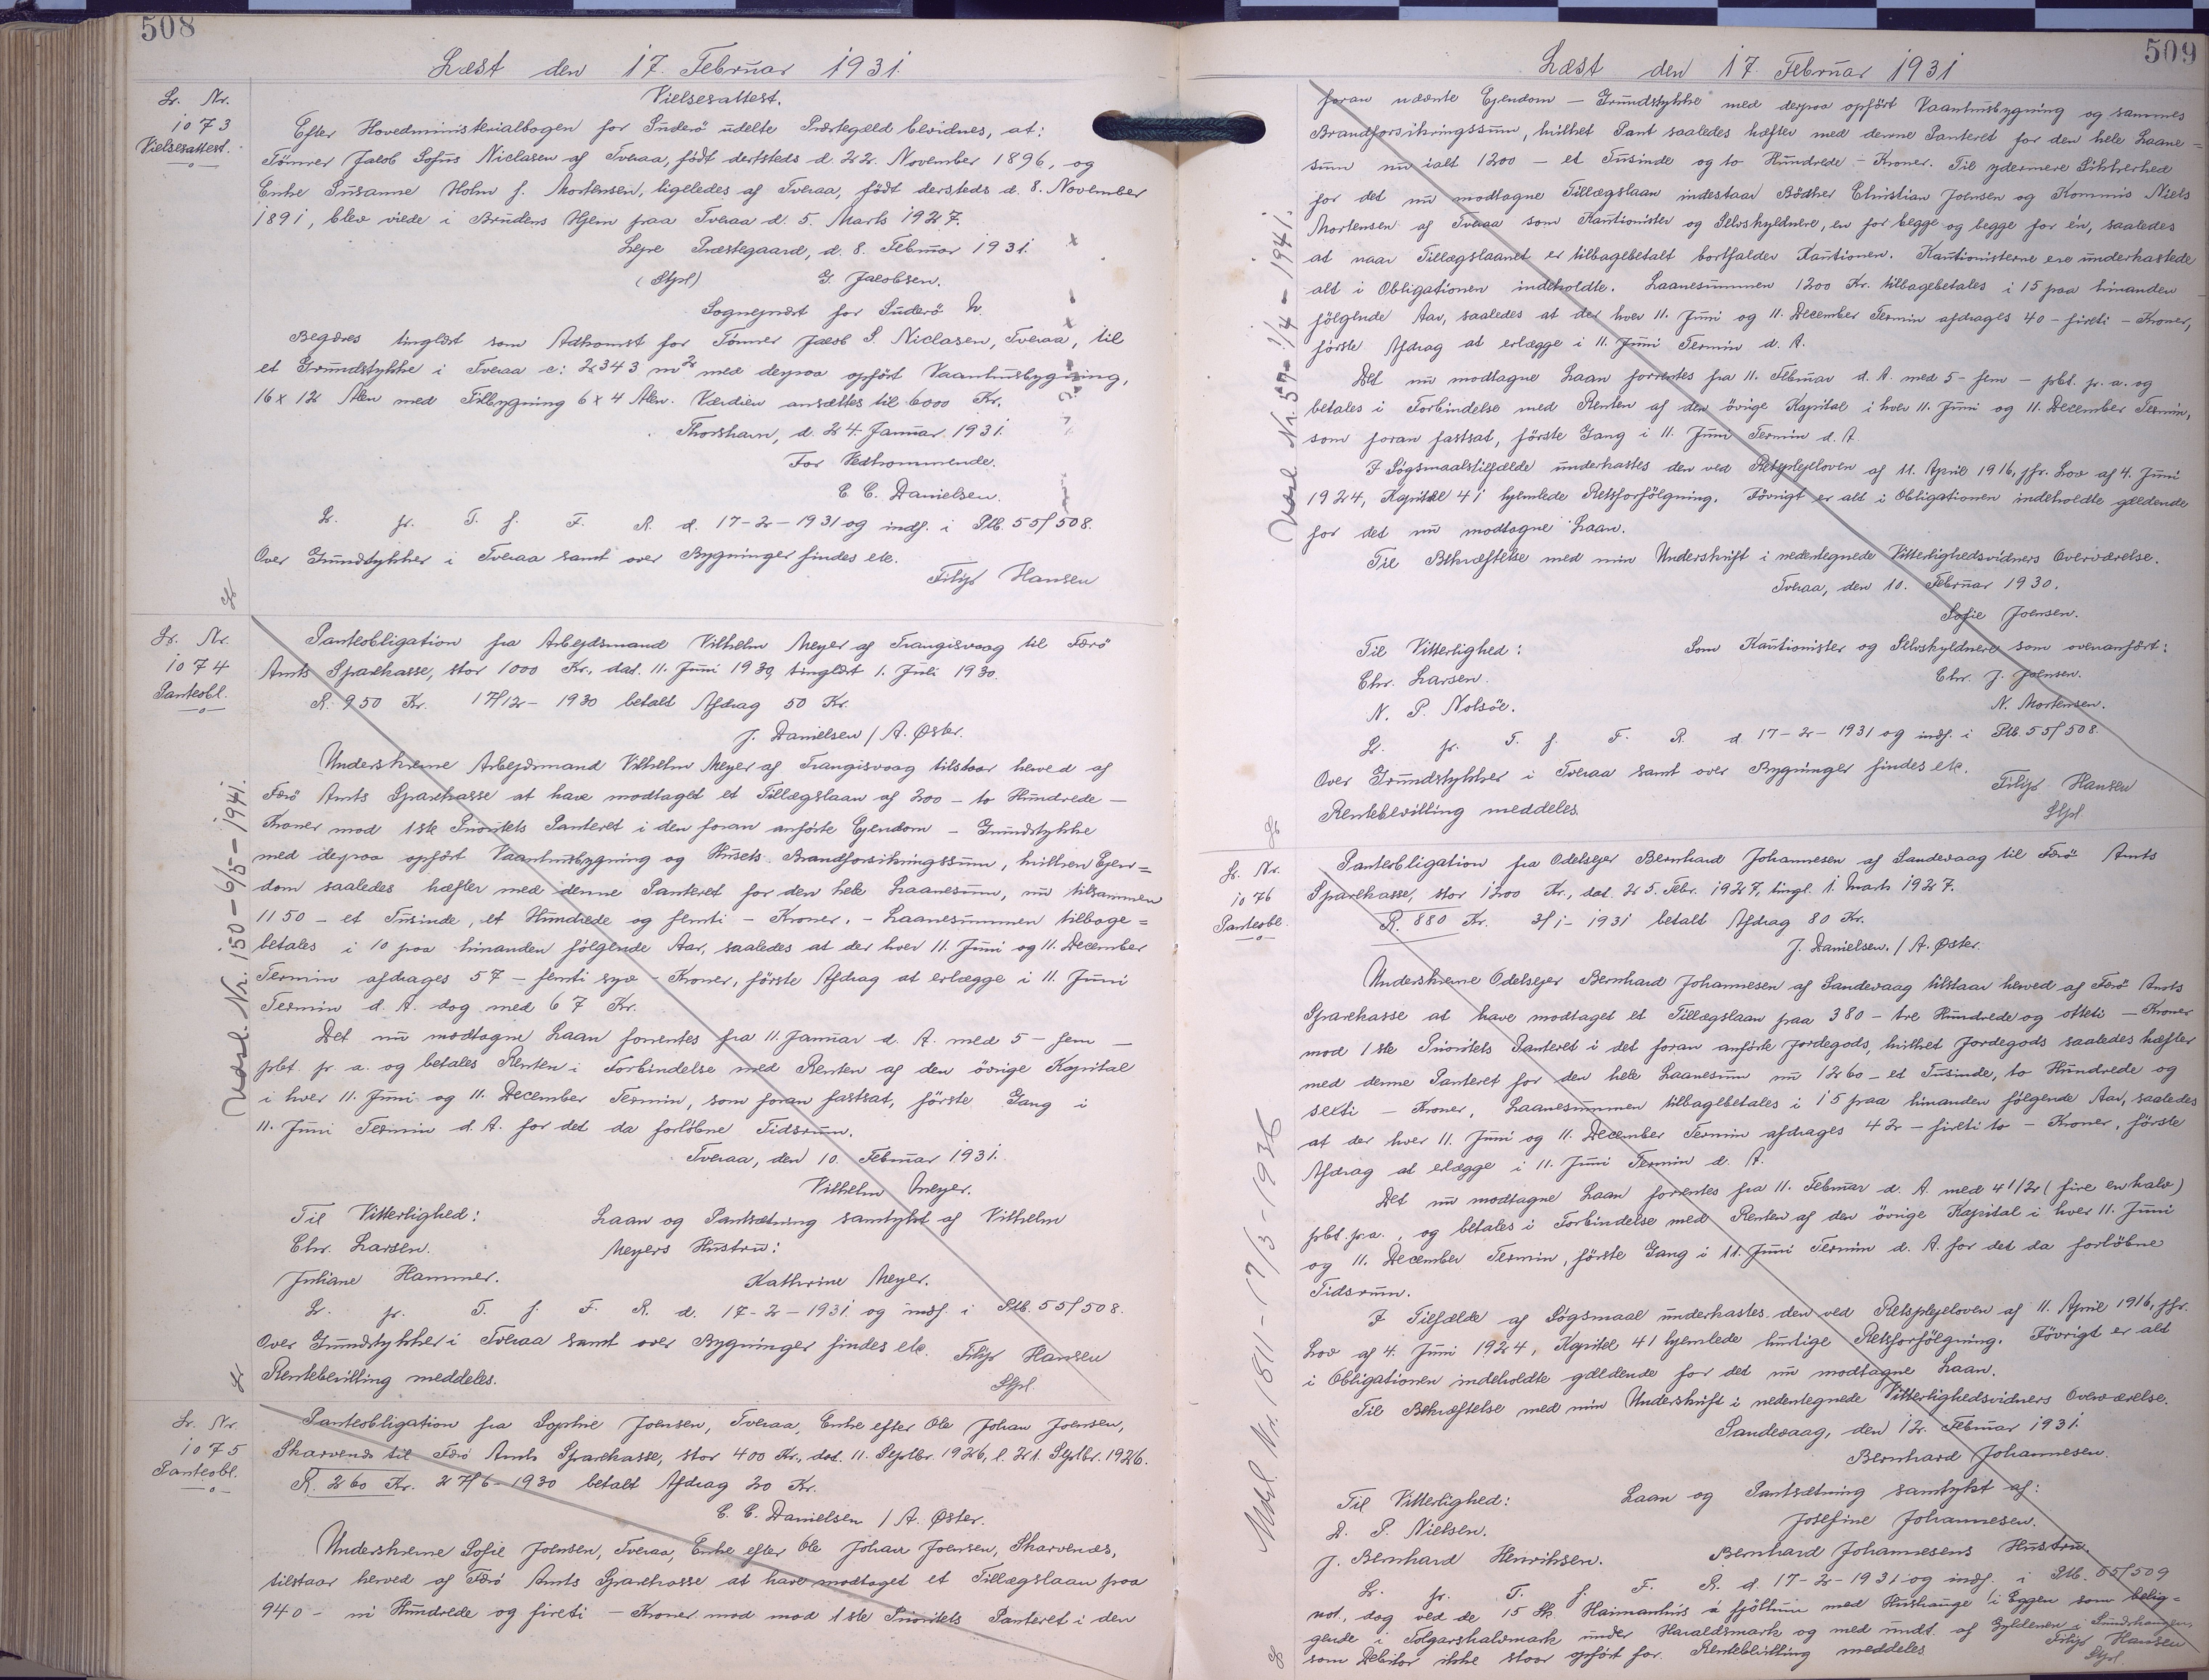 508
Læst den 17. Februar 1931.
Lr. Nr.
1073
Vielsesattest.
Vielsesattest.
Efter Hovedministerialbogen for Suderö udelte Præstegæld bevidnes, at:
Tømrer Jacob Sofus Niclasen af Tveraa, født dersteds d. 22. November 1896, og
Enke Susanne Holm f. Mortensen, ligeledes af Tveraa, født dersteds d. 8. November
1891, blev viede i Brudens Hjem paa Tveraa d. 5. Marts 1927.
Præstegaard, d. 8. Februar 1931.
(Stpl) G. Jacobsen.
Sognepræst for Suderö
Begæres tinglæst som Adkomst for Tømrer Jacob S. Niclasen, Tveraa, til
et Grundstykke i Tveraa c: 2343 m² med derpaa opført Vaaningsbygning,
16 x 12 Alen med Tilbygning 6 x 4 Alen. Værdien ansættes til 6000 Kr.
Thorshavn, d. 24. Januar 1931.
For Vedkommende.
C. C. Danielsen.
Lr. pr. T. f. F. R. d. 17-2-1931 og indf. i Ptb. 55/508.
Over Grundstykker i Tveraa samt over Bygninger findes etc.
Filip Hansen
Lr. Nr.
1074
Panteobl.
Panteobligation fra Arbejdsmand Vilhelm Meyer af Trangisvaag til Færö
Amts Sparekasse, stor 1000 Kr., dat. 11. Juni 1930, tinglæst 1. Juli 1930.
R. 950 Kr. 17/12-1930 betalt Afdrag 50 Kr.
J. Danielsen / A. Øster.
Underskrevne Arbejdsmand Vilhelm Meyer af Trangisvaag tilstaar herved af
Færö Amts Sparekasse at have modtaget et Tillægslaan af 200 - to Hundrede -
Kroner mod 1ste Prioritets Panteret i den foran anførte Ejendom - Grundstykke
med derpaa opført Vaaningsbygning og Husets Brandforsikringssum, hvilken Ejen=
dom saaledes hæfter med denne Panteret for den hele Laanesum, nu tilsammen
1150 - et Tusinde, et Hundrede og femti - Kroner. - Laanesummen tilbage=
betales i 10 paa hinanden følgende Aar, saaledes at der hver 11. Juni og 11. December
Termin afdrages 57 - femti syv - Kroner, første Afdrag at erlægge i 11. Juni
Termin d. A. dog med 67 Kr.
Det nu modtagne Laan forrentes fra 11. Januar d. A. med 5 - fem -
pct. pr. a. og betales Renten i Forbindelse med Renten af den övrige Kapital
i hver 11. Juni og 11. December Termin, som foran fastsat, første Gang i
11. Juni Termin d. A. for det da forløbne Tidsrum.
Tveraa, den 10. Februar 1931.
Vilhelm Meyer.
Til Vitterlighed: Laan og Pantsætning samtykt af Vilhelm
Chr. Larsen. Meyers Hustru:
Juliane Hammer. Kathrine Meyer.
Lr. pr. T. f. F. R. d. 17-2-1931 og indf. i Ptb. 55/508.
Over Grundstykker i Tveraa samt over Bygninger findes etc. Filip Hansen
Rentebevilling meddeles. Stpl.
Udsl. Nr. 150 - 6/5 - 1941.
Lr. Nr.
1075
Panteobl.
Panteobligation fra Sophie Joensen, Tveraa, Enke efter Ole Johan Joensen,
Skarvenes til Færö Amts Sparekasse, stor 400 Kr., dat. 11. Septbr. 1926, l. 21. Septbr. 1926.
R. 260 Kr. 27/6-1930 betalt Afdrag 20 Kr.
C. C. Danielsen / A. Øster.
Underskrevne Sofie Joensen, Tveraa, Enke efter Ole Johan Joensen, Skarvenes,
tilstaar herved af Færö Amts Sparekasse at have modtaget et Tillægslaan paa
940 - ni Hundrede og fireti - Kroner mod mod 1ste Prioritets Panteret i den
509
Læst den 17. Februar 1931
foran nævnte Ejendom - Grundstykke med derpaa opført Vaaningsbygning og sammes
Brandforsikringssum, hvilket Pant saaledes hæfter med denne Panteret for den hele Laane=
sum nu ialt 1200 - et Tusinde og to Hundrede - Kroner. Til ydermere Sikkerhed
for det nu modtagne Tillægslaan indestaar Bödker Christian Joensen og Kommis Niels
Mortensen af Tveraa som Kautionister og Selvskyldnere, en for begge og begge for én, saaledes
at naar Tillægslaanet er tilbagebetalt bortfalder Kautionen. Kautionisterne ere underkastede
alt i Obligationen indeholdte. Laanesummen 1200 Kr. tilbagebetales i 15 paa hinanden
følgende Aar, saaledes at der hver 11. Juni og 11. December Termin afdrages 40 - fireti - Kroner,
første Afdrag at erlægge i 11. Juni Termin d. A.
Det nu modtagne Laan forrentes fra 11. Februar d. A. med 5 - fem - pct. pr. a. og
betales i Forbindelse med Renten af den övrige Kapital i hver 11. Juni og 11. December Termin,
som foran fastsat, første Gang i 11. Juni Termin d. A.
I Søgsmaalstilfælde underkastes den ved Retsplejeloven af 11. April 1916, jfr. Lov af 4. Juni
1924, Kapitel 41 hjemlede Retsforfølgning. Iøvrigt er alt i Obligationen indeholdte gældende
for det nu modtagne Laan.
Til Bekræftelse med min Underskrift i nedentegnede Vitterlighedsvidners Overværelse.
Tveraa, den 10. Februar 1930.
Sofie Joensen.
Til Vitterlighed: Som Kautionister og Selvskyldnere som ovenanført:
Chr. Larsen. Chr. J. Joensen.
N. P. Nolsöe. N. Mortensen.
Lr. pr. T. f. F. R. d. 17-2-1931 og indf. i Ptb. 55/508.
Over Grundstykker i Tveraa samt over Bygninger findes etc. Filip Hansen
Rentebevilling meddeles. Stpl.
Udsl. Nr. 57 - 1/4 - 1941.
Lr. Nr.
1076
Panteobl.
Panteobligation fra Odelsejer Bernhard Johannesen af Sandevaag til Færö Amts
Sparekasse, stor 1200 Kr., dat. 25. Febr. 1927, tingl. 1. Marts 1927.
R. 880 Kr. 3/1-1931 betalt Afdrag 80 Kr.
J. Danielsen. / A. Øster.
Underskrevne Odelsejer Bernhard Johannesen af Sandevaag tilstaar herved af Færö Amts
Sparekasse at have modtaget et Tillægslaan paa 380 - tre Hundrede og otteti - Kroner
mod 1ste Prioritets Panteret i det foran anførte Jordegods, hvilket Jordegods saaledes hæfter
med denne Panteret for den hele Laanesum nu 1260 - et Tusinde, to Hundrede og
sexti - Kroner. Laanesummen tilbagebetales i 15 paa hinanden følgende Aar, saaledes
at der hver 11. Juni og 11. December Termin afdrages 42 - fireti to - Kroner, første
Afdrag at erlægge i 11. Juni Termin d. A.
Det nu modtagne Laan forrentes fra 11. Februar d. A. med 4 1/2 (fire en halv)
pct. pr a., og betales i Forbindelse med Renten af den övrige Kapital i hver 11. Juni
og 11. December Termin, første Gang i 11. Juni Termin d. A. for det da forløbne
Tidsrum.
I Tilfælde af Søgsmaal underkastes den ved Retsplejeloven af 11. April 1916, jfr.
Lov af 4. Juni 1924, Kapitel 41 hjemlede hurtige Retsforfølgning. Iøvrigt er alt
i Obligationen indeholdte gældende for det nu modtagne Laan.
Til Bekræftelse med min Underskrift i nedentegnede Vitterlighedsvidners Overværelse.
Sandevaag, den 12. Februar 1931.
Bernhard Johannesen.
Til Vitterlighed: Laan og Pantsætning samtykt af:
D. P. Nielsen. Josefine Johannesen.
J. Bernhard Henriksen. Bernhard Johannesens Hustru.
Lr. pr. T. f. F. R. d. 17-2-1931 og indf. i Ptb. 55/509
not., dog ved de 15 Sk. Haimanhús á fjöllum med Hushauge i Eggen som belig=
gende i Tolgarshalvmark under Haraldsmark og med undt. af Gyldenen i
som Debitor ikke staar opført for. Rentebevilling meddeles Filip Hansen
Stpl.
Udsl. Nr. 1811 - 17/3 - 1936